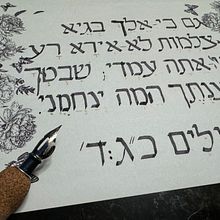 גם כי-אלך בגיא
צלמות לא-אירא רע
כי-אתה עמדי; שבטך
המה ינחמני
כ"ג:ד'